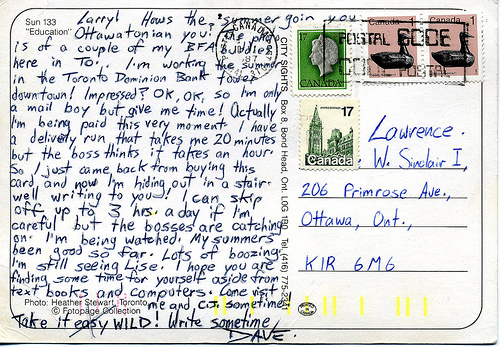 Sun 133
"Education"
Larry! Hows the summer goin you
Ottawatonian you! The
is of a couple of my BFA buddies
here in To.. I'm working the summer
in the Toronto Dominion Bank tower
downtown! Impressed? OK, OK, so I'm only
a mail boy but give me time! Actually
I'm being paid this very moment. I have
a delivery run that takes me 20 minutes
but the boss thinks it takes an hour.
So I just came back from buying this
card and now I'm hiding out in a stair-
well writing to you! I can skip
off up to 3 hrs. a day if I'm
careful but the bosses are catching
on. I'm being watched. My summers
been good so far. Lots of boozing.
I'm still seeing Lise. I hope you are
finding some time for yourself aside from
text books and computers. Come visit
me and C.J. sometime.
Photo: Heather Stewart, Toronto
© Fotopage Collection
Take it easy WILD! Write sometime
DAVE.
CITY SIGHTS, Box 8, Bond Head, Ont. L0G 1B0 Tel. (416) 775-
CANADA
17
CANADA
Canada 1
Canada 1
POSTAL CODE
CODE POSTAL
17
Canada
Lawrence
W. Sinclair I,
206 Primrose Ave.,
Ottawa, Ont.,
K1R 6M6